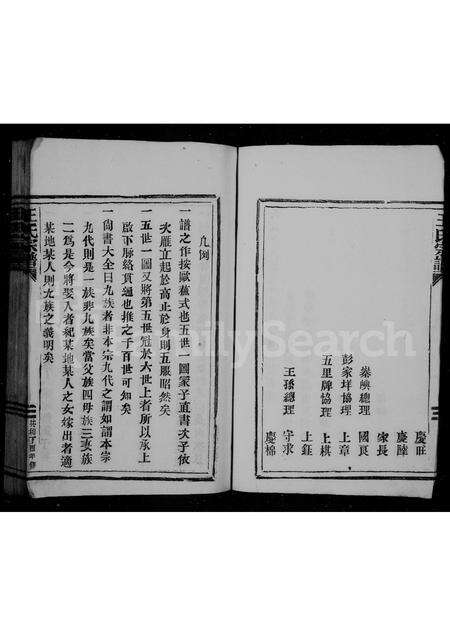 慶旺
慶陸
家長
國良
上章
上棋
上鈺
守求
慶棉
總理
彭家垟協理
五里牌協理
王孫總理
凡例
一譜之作按歐蘇式也五世一圖冢子直書次子依
次雁立起於高止於身則五服昭然矣
一五世一圖又將第五世冠於六世上者所以承上
啟下脉絡貫通也推之子百世可知矣
一尚書大全曰九族者非本宗九代之謂如謂本宗
九代則是一族非九族矣當父族四母族三妻族
二為是今將娶入者紀某地某人之女嫁出者適
某地某人則九族之義明矣
王氏宗譜
FamilySearch